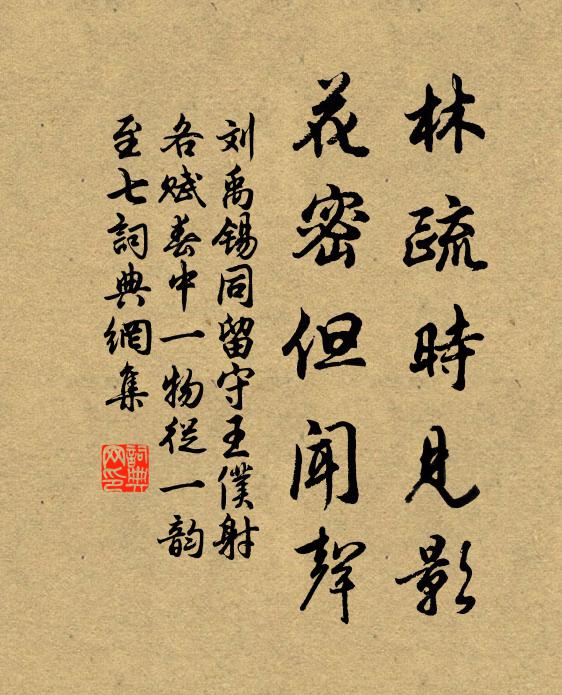 林疏時見影
花密但聞聲
刘禹锡同留守王僕射
各赋春中一物從一韵
至七詞典網集
詞典网印